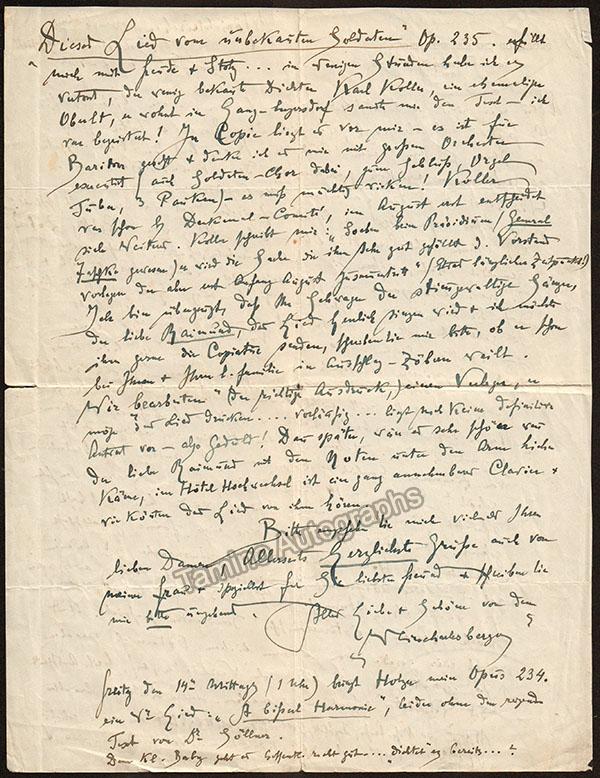 "Dieses Lied vom unbekannten Soldaten" Op. 235. erfüllt
mich mit Freude & Stolz... in wenigen Stunden habe ich es
vertont, der wenig bekannte Dichter Karl Koller, ein ehemaliger
Oberlt, er wohnt in sandte mir den Text – ich
war begeistert! In Copie liegt es vor mir – es ist für
Bariton gesetzt & denke ich es mir mit großem Orchester
(auch Soldaten-Chor dabei, zum Schluss, Orgel
Tuba, 3 Pauken) – es muß mächtig wirken! Koller
war schon b. Denkmal-Comité, im August erst entscheidet
sich Weiteres. Koller schreibt mir: "Soeben beim Präsidium (General
gewesen) er wird die Sache die ihm sehr gut gefällt d. Vorstand
vorlegen der aber erst Anfang August zusammentritt"
Ich bin überzeugt, daß Ihr Schwager der stimmgewaltige Sänger,
der liebe Raimund, das Lied herrlich singen wird & ich möchte
ihm gerne die Copiatur senden, schreiben Sie mir bitte, ob er schon
bei Ihnen & Ihrer l. Familie in weilt.
Wir "bearbeiten" (der richtige Ausdruck,) einen Verleger, er
möge das Lied drucken.... vorläufig.... liegt noch keine definitive
Antwort vor – also Geduld! Dann später, wäre es sehr schön wenn
der liebe Raimund mit den Noten unter dem Arm hieher
käme, im Hôtel Hochwechsel ist ein ganz annehmbares Clavier &
wir könnten das Lied von ihm hören.
Bitte Sie mich vielmals Ihren
lieben Damen Allerseits herzlichste Grüße auch von
meiner Frau & speziellst für Sie liebster Freund & schreiben Sie
mir bitte umgehend. Alles Liebe & Schöne von dem

Freitag den 14ten Mittags (1 Uhr) bringt mein Opus 234.
ein Lied: "A bissel Harmonie", leider ohne den
Text von Dr. Söllner.
Dem Kl. Baby geht es hoffentl. recht gut... "Dichtet" es bereits...?
Tamino Autographs